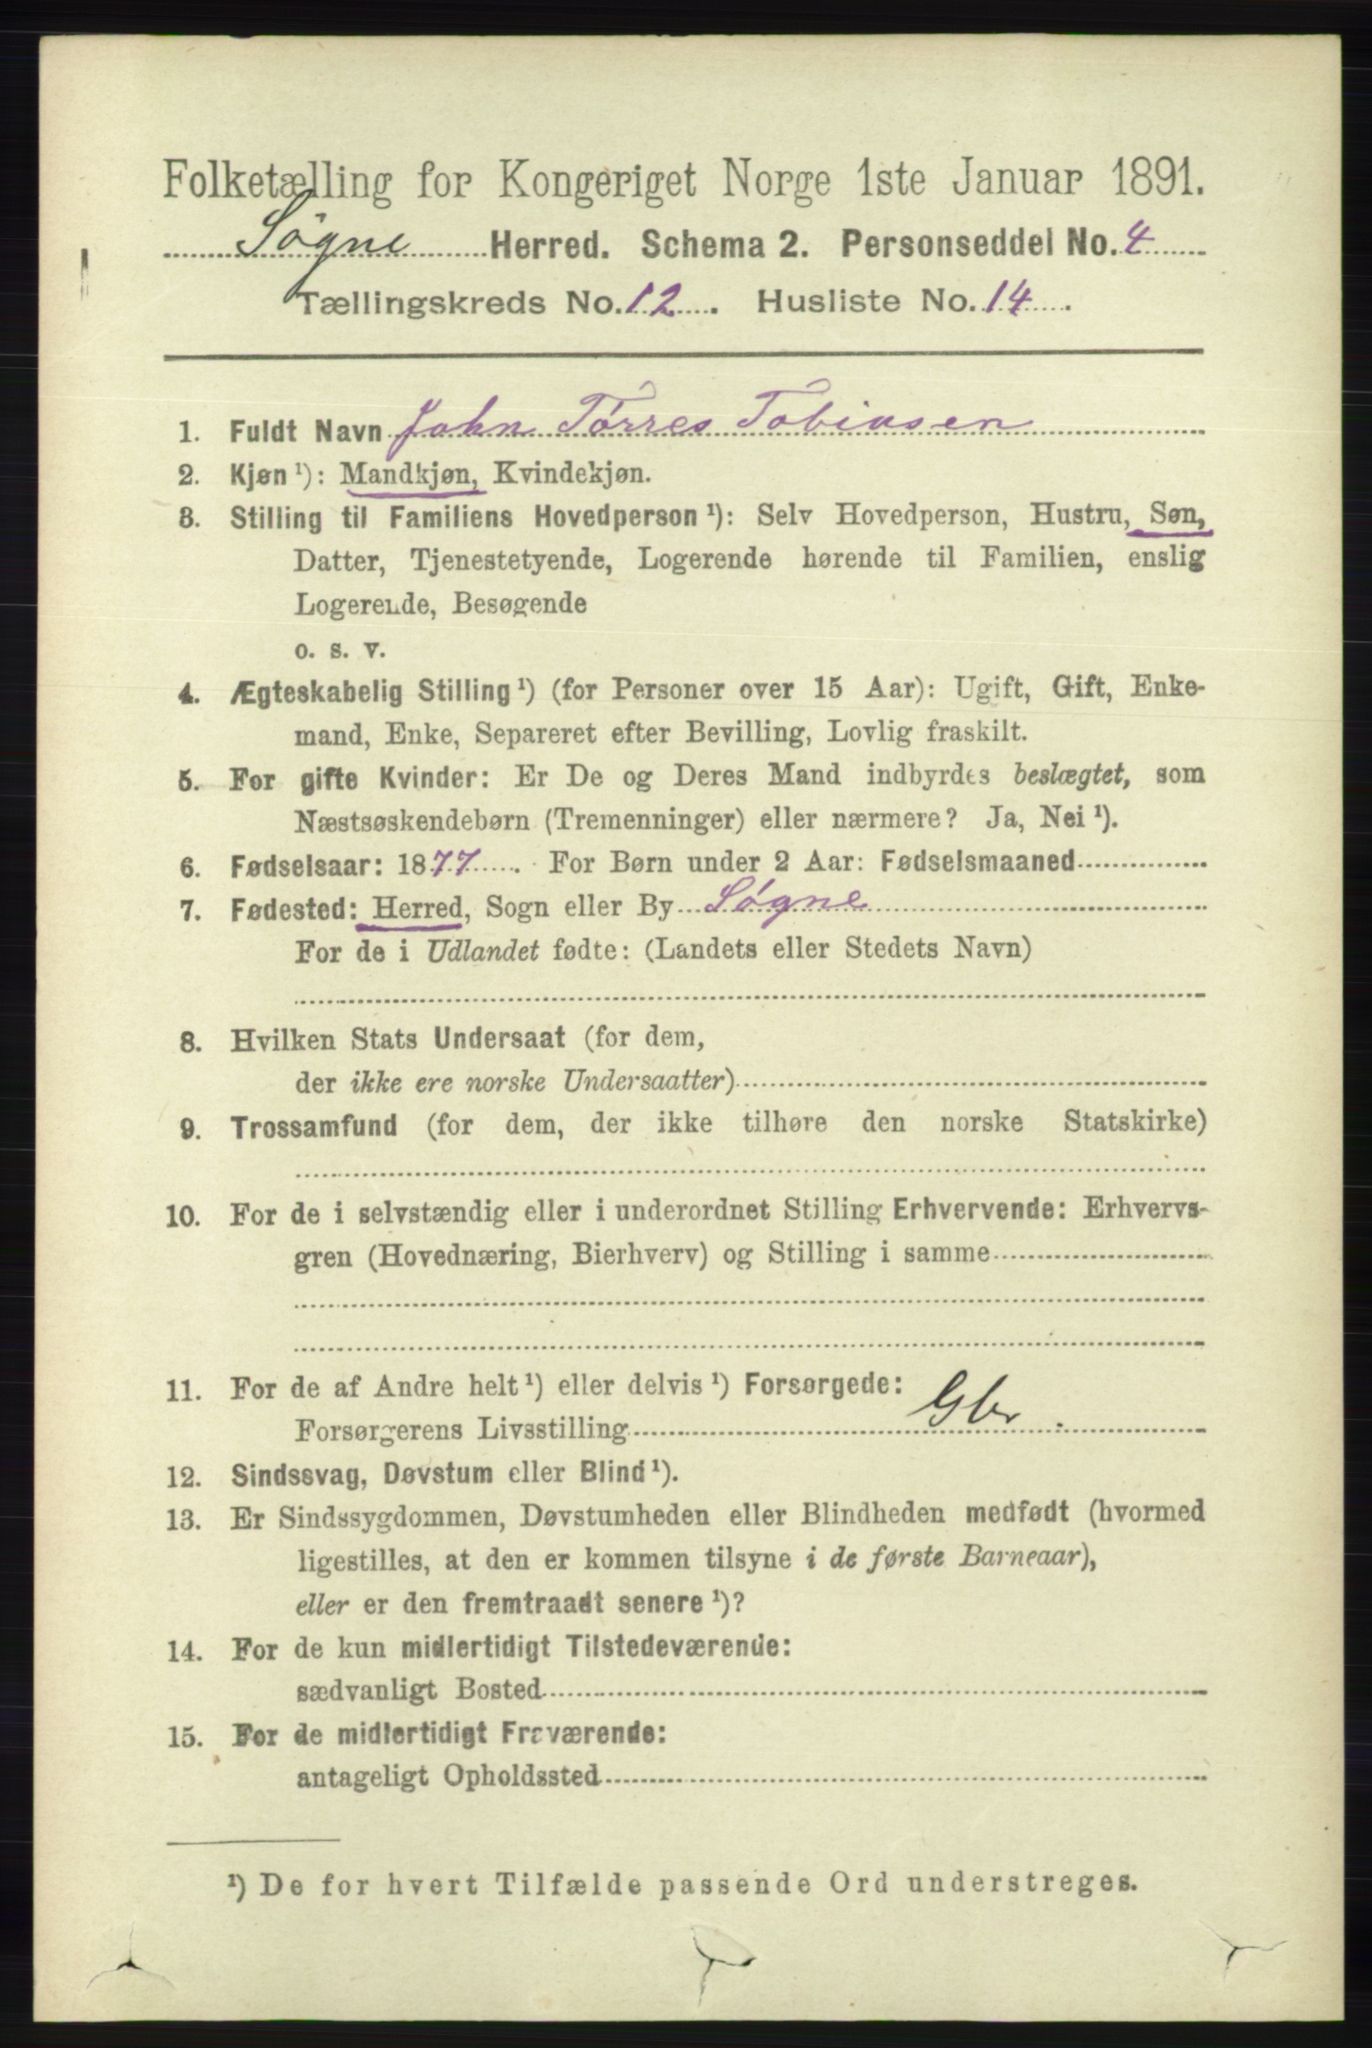 Folketælling for Kongeriget Norge 1ste Januar 1891.
Søgne Herred. Schema 2. Personseddel No. 4
Tællingskreds No. 12. Husliste No. 14.
1. Fuldt Navn John Tørres Tobiasen
2. Kjøn ¹): Mandkjøn, Kvindekjøn.
3. Stilling til Familiens Hovedperson ¹): Selv Hovedperson, Hustru, Søn,
Datter, Tjenestetyende, Logerende hørende til Familien, enslig
Logerende, Besøgende
o. s. v.
4. Ægteskabelig Stilling ¹) (for Personer over 15 Aar): Ugift, Gift, Enke-
mand, Enke, Separeret efter Bevilling, Lovlig fraskilt.
5. For gifte Kvinder: Er De og Deres Mand indbyrdes beslægtet, som
Næstsøskendebørn (Tremenninger) eller nærmere? Ja, Nei ¹).
6. Fødselsaar: 1877. For Børn under 2 Aar: Fødselsmaaned
7. Fødested: Herred, Sogn eller By Søgne
For de i Udlandet fødte: (Landets eller Stedets Navn)
8. Hvilken Stats Undersaat (for dem,
der ikke ere norske Undersaatter)
9. Trossamfund (for dem, der ikke tilhøre den norske Statskirke)
10. For de i selvstændig eller i underordnet Stilling Erhvervende: Erhvervs-
gren (Hovednæring, Bierhverv) og Stilling i samme
11. For de af Andre helt ¹) eller delvis ¹) Forsørgede:
Forsørgerens Livsstilling Gbr.
12. Sindssvag, Døvstum eller Blind ¹).
13. Er Sindssygdommen, Døvstumheden eller Blindheden medfødt (hvormed
ligestilles, at den er kommen tilsyne i de første Barneaar),
eller er den fremtraadt senere ¹)?
14. For de kun midlertidigt Tilstedeværende:
sædvanligt Bosted
15. For de midlertidigt Fraværende:
antageligt Opholdssted
¹) De for hvert Tilfælde passende Ord understreges.